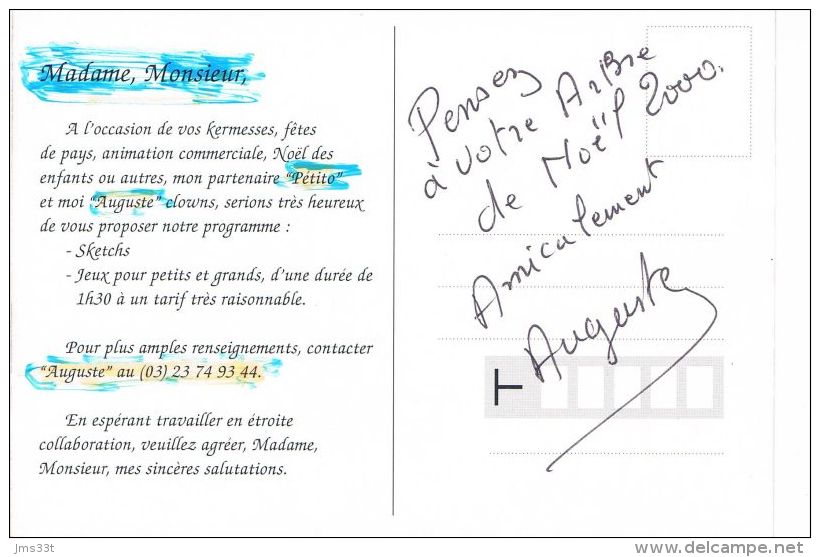 Madame, Monsieur,
A l'occasion de vos kermesses, fêtes
de pays, animation commerciale, Noël des
enfants ou autres, mon partenaire "Pétito"
et moi "Auguste" clowns, serions très heureux
de vous proposer notre programme :
- Sketchs
- Jeux pour petits et grands, d'une durée de
1h30 à un tarif très raisonnable.
Pour plus amples renseignements, contacter
"Auguste" au (03) 23 74 93 44.
En espérant travailler en étroite
collaboration, veuillez agréer, Madame,
Monsieur, mes sincères salutations.
Pensez
à votre Arbre
de Noël 2000.
Amicalement
Auguste
T
jms33t
delcampe.net